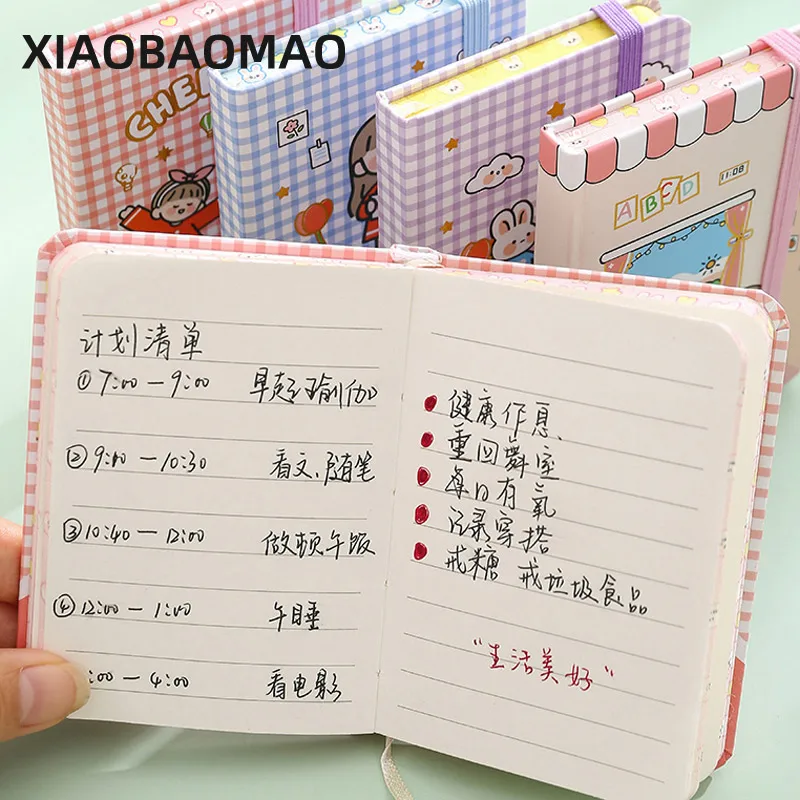 XIAOBAOMAO
CHE
ABCD
11:08
计划清单
①7:00—9:00 早起瑜伽
②9:00—10:30 看文、随笔
③10:40—12:00 做顿午饭
④12:00—1:00 午睡
:00—4:00 看电影
健康作息、
重回舞室
每日有氧
记录穿搭
戒糖 戒垃圾食品
"生活美好"